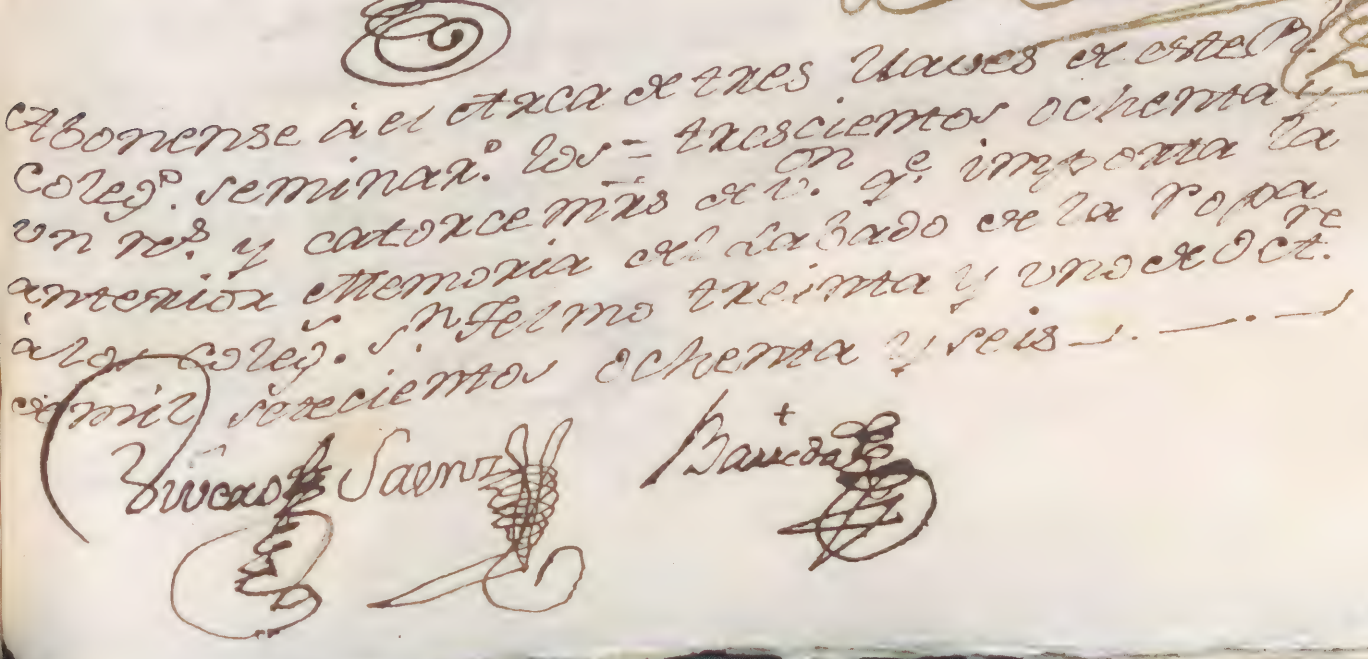 Abonense à el Arca de tres llaves de este R.
Coleg.º seminar.º los = trescientos ochenta y
un rs.ˢ y catorce mrs de v.ºⁿ q.ᵉ importa la
anterior Memoria del Labado de la Ropa
à los Coleg.ˢ Sⁿ Telmo treinta y uno de Oct.ʳᵉ
de mil setecientos ochenta y seis
Saenz